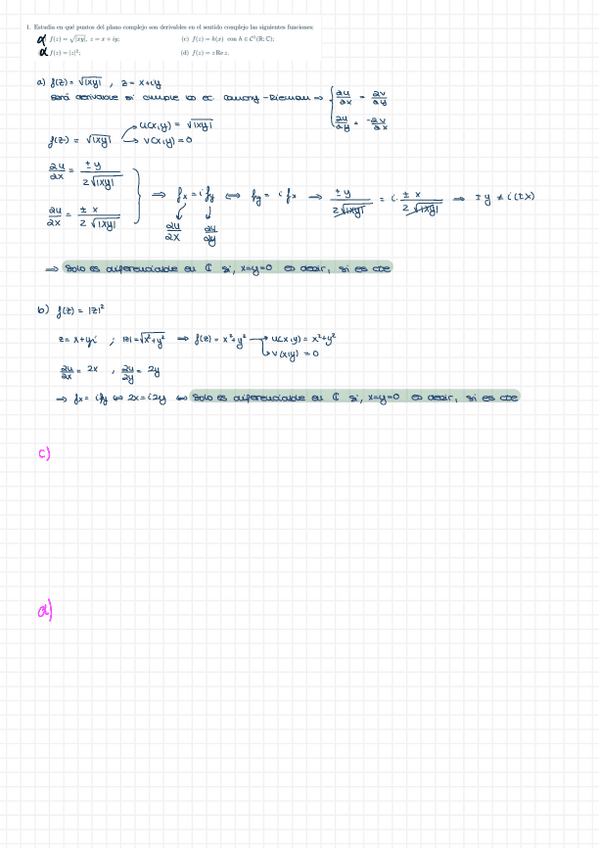 1. Estudia en qué puntos del plano complejo son derivables en el sentido complejo las siguientes funciones:
f(z) = √|xy|, z = x + iy; (c) f(z) = h(x) con h ∈ C¹(ℝ; ℂ);
f(z) = |z|²; (d) f(z) = z Re z.
a) f(z) = √|xy| , z = x+iy
Será derivable si cumple las ec. Cauchy-Rieman ⇒ { ∂u/∂x = ∂v/∂y
∂u/∂y = -∂v/∂x
f(z) = √|xy| → u(x,y) = √|xy|
→ v(x,y) = 0
∂u/∂x = ± y / 2√|xy|
⇒ fx = i fy ⇔ fy = i fx ⇒ ± y / 2√|xy| = i · ± x / 2√|xy| ⇒ ± y ≠ i (± x)
∂u/∂x = ± x / 2√|xy|
∂u/∂x ∂u/∂y
⇒ Solo es diferenciable en ℂ si, x=y=0 es decir, si es cte
b) f(z) = |z|²
z = x+yi ; |z| = √x²+y² ⇒ f(z) = x²+y² → u(x,y) = x²+y²
→ v(x,y) = 0
∂u/∂x = 2x , ∂u/∂y = 2y
⇒ fx = ify ⇔ 2x = i2y ⇔ Solo es diferenciable en ℂ si, x=y=0 es decir, si es cte
c)
d)